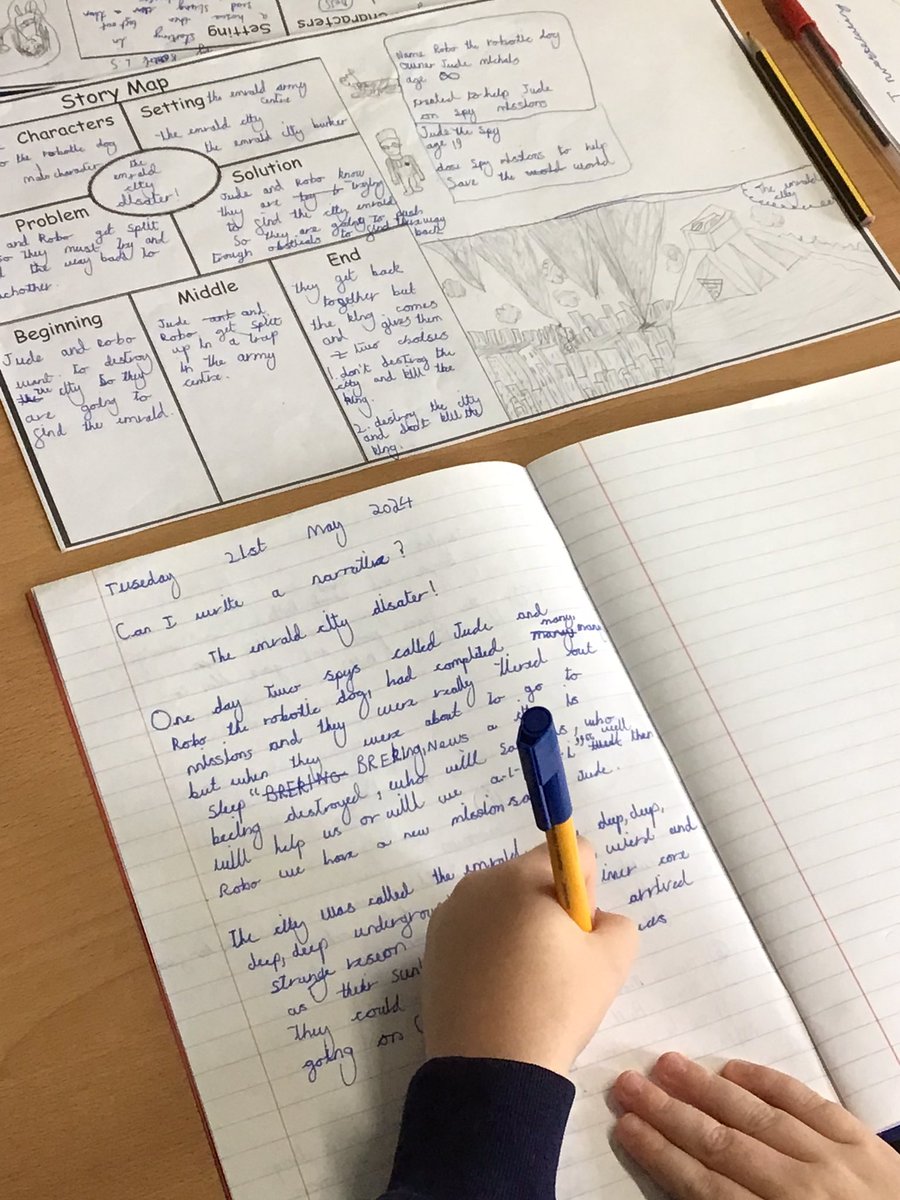 Setting
Characters
Story Map
Characters
the robotic dog
main character
Setting the emrald army
centre
-the emrald city
the emrald city bunker
the
emrald
city
disaster!
Problem
and Robo get split
so they must try and
the way back to
eachother.
Solution
Jude and Robo know
they are trying
to find the city emrald
So they are going to push
trough obsticals to find there way
back
Beginning
Jude and Robo
want to destroy
the city So they
are going to
find the emrald.
Middle
Jude and
Robo get split
up in a trap
in the army
centre.
End
they get back
together but
the king comes
and gives them
two choises
1. don't destroy the
city and kill the
king.
2. destroy the city
and don't kill the
king.
Name Robo the robotic dog
owner Jude nichols
age ∞
created to help Jude
on spy missions
Jude the Spy
age 19
does spy missions to help
Save the world
The emrald
city
Tuseday 21st May 2024
Can I write a narrative?
The emrald city disater!
One day two spys called Jude and
Robo the robotic dog, had complited many more
missions and they were really tiered out
but when they were about to go to
sleep "BREKING BREKING News a is
being destroyed, who will , who
will help us or will we a-l-l then
Robo we have a new mission Jude.
The city was called the emrald deep, deep,
deep, deep undergrou wierd and
strange reason iner core
as their arrived
They could was
going on